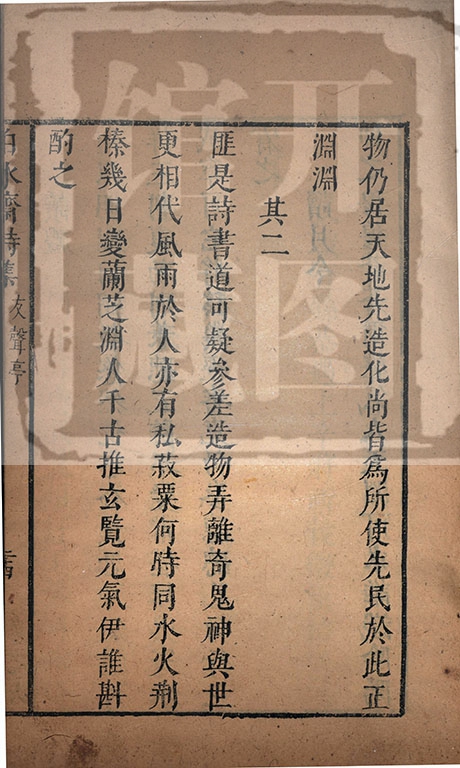 物仍居天地先造化尚皆爲所使先民於此正
淵淵
其二
匪是詩書道可疑參差造物弄離奇鬼神與世
更相代風雨於人亦有私菽粟何時同水火荆
榛幾日變蘭芝淵人千古推玄覽元氣伊誰斟
酌之
白氷齋詩集
友聲亭